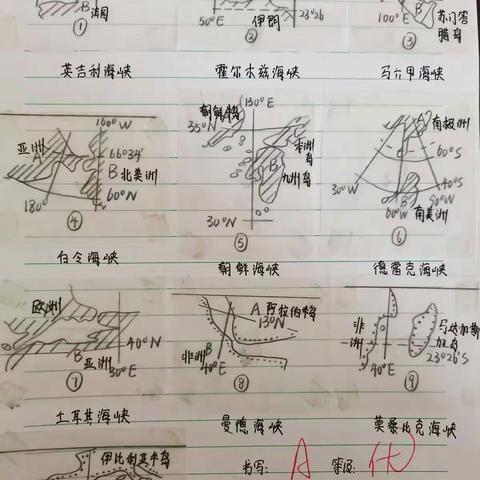 B 法国
①
50°E 伊朗 23°26′
②
100°E
B
苏门答
腊岛
③
英吉利海峡 霍尔木兹海峡 马六甲海峡
亚洲
A
160°W
66°34′
B 北美洲
60°N
180°
④
朝鲜半岛
130°E
35°N
A
本州
岛
B
九州岛
30°N
⑤
A
南极洲
60°S
40°S
30°W
90°W
60°W
B
南美洲
⑥
白令海峡 朝鲜海峡 德雷克海峡
欧洲
A
B
亚洲
40°N
30°E
⑦
A 阿拉伯半岛
13°N
非洲 B
40°E
⑧
非
洲
马达加斯
加岛
23°26′S
40°E
⑨
土耳其海峡 曼德海峡 莫桑比克海峡
伊比利亚半岛
书写: A 等级: 优